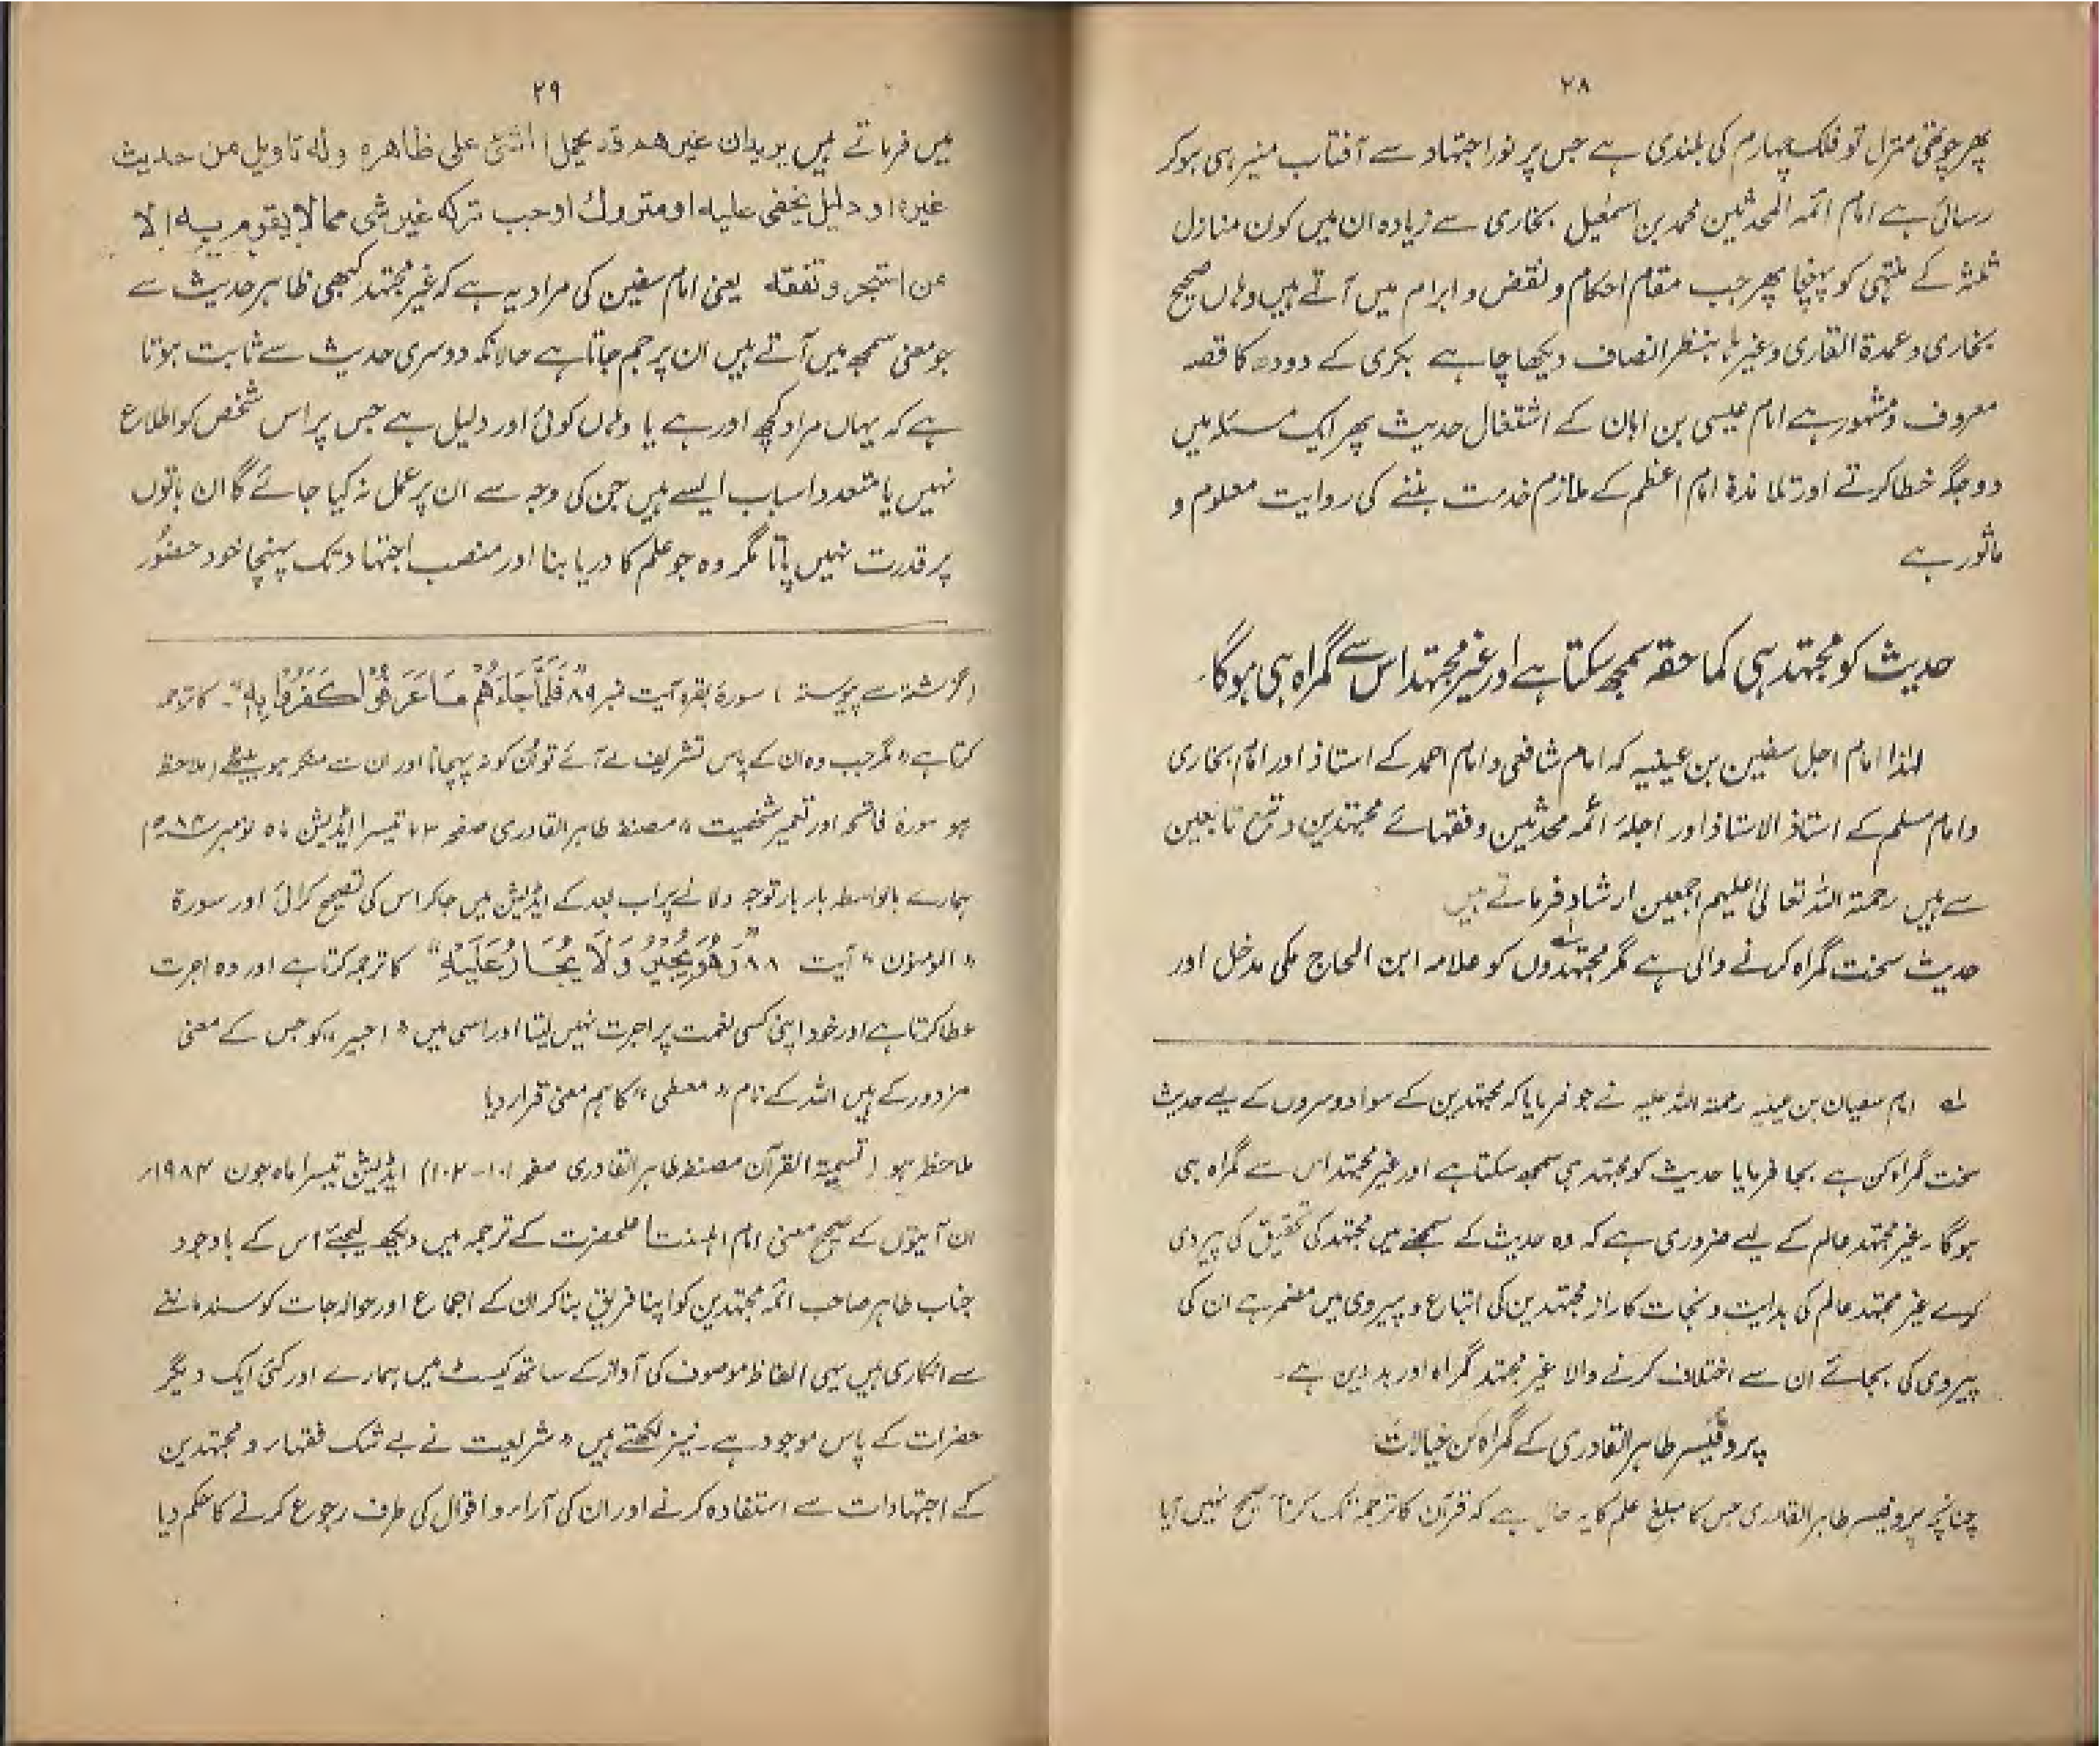 ۲۸
پھر چوتھی منزل تو فلک چہارم کی بلندی ہے جس پر نور اجتہاد سے آفتاب منیر ہی ہو کر
رسائی ہے امام ائمہ المحدثین محمد بن اسمٰعیل بخاری سے زیادہ ان میں کون منازل
ثلٰثہ کے منتہی کو پہنچا پھر جب مقام احکام و نقض و ابرام میں آتے ہیں وہاں صحیح
بخاری و عمدۃ القاری وغیرہا بنظر انصاف دیکھا چاہے بکری کے دودھ کا قصہ
معروف و مشہور ہے امام عیسی بن ابان کے اشتغال حدیث پھر ایک مسئلہ میں
دو جگہ خطا کرتے اور تلامذۂ امام اعظم کے ملازم خدمت بننے کی روایت معلوم و
ماثور ہے
حدیث کو مجتہد ہی کما حقہ سمجھ سکتا ہے اور غیر مجتہد اس سے گمراہ ہی ہوگا۔
لہٰذا امام اجل سفین بن عیینہ کہ امام شافعی و امام احمد کے استاذ اور امام بخاری
و امام مسلم کے استاذ الاستاذ اور اجلۂ ائمہ محدثین و فقہائے مجتہدین و تبع تابعین
سے ہیں رحمۃ اللہ تعالیٰ علیہم اجمعین ارشاد فرماتے ہیں
حدیث سخت گمراہ کرنے والی ہے مگر مجتہدوں کو علامہ ابن الحاج مکی مدخل اور
لے امام سفیان بن عیینہ رحمۃ اللہ علیہ نے جو فرمایا کہ مجتہدین کے سوا دوسروں کے لیے حدیث
سخت گمراہ کن ہے بجا فرمایا حدیث کو مجتہد ہی سمجھ سکتا ہے اور غیر مجتہد اس سے گمراہ ہی
ہوگا۔ غیر مجتہد عالم کے لیے ضروری ہے کہ وہ حدیث کے سمجھنے میں مجتہد کی تحقیق کی پیروی
کرے غیر مجتہد عالم کی ہدایت و نجات کا راز مجتہدین کی اتباع و پیروی میں مضمر ہے ان کی
پیروی کی بجائے ان سے اختلاف کرنے والا غیر مجتہد گمراہ اور بد دین ہے۔
پروفیسر طاہر القادری کے گمراہ کن خیالات
چنانچہ پروفیسر طاہر القادری جس کا مبلغ علم کا یہ حال ہے کہ قرآن کا ترجمہ تک کرنا صحیح نہیں آیا
۲۹
میں فرماتے ہیں یریدان غیرھم قد یحمل الشئ علی ظاھرہ ولہ تاویل من حدیث
غیرہ او دلیل یخفی علیہ او متروك اوجب ترکہ غیر شی مما لا یقوم بہ الا
من استبحر و تفقہ یعنی امام سفین کی مراد یہ ہے کہ غیر مجتہد کبھی ظاہر حدیث سے
جو معنی سمجھ میں آتے ہیں ان پر جم جاتا ہے حالانکہ دوسری حدیث سے ثابت ہوتا
ہے کہ یہاں مراد کچھ اور ہے یا وہاں کوئی اور دلیل ہے جس پر اس شخص کو اطلاع
نہیں یا متعدد اسباب ایسے ہیں جن کی وجہ سے ان پر عمل نہ کیا جائے گا ان باتوں
پر قدرت نہیں پاتا مگر وہ جو علم کا دریا بنا اور منصب اجتہاد تک پہنچا خود حضور
(گزشتہ سے پیوستہ) سورۂ بقرہ آیت نمبر ۸۹ "فَلَمَّا جَاءَهُمْ مَا عَرَفُوْا كَفَرُوْا بِهٖ"۔ کا ترجمہ
کرتا ہے "مگر جب وہ ان کے پاس تشریف لے آئے تو اُن کو نہ پہچانا اور ان سے منکر ہو بیٹھے (ملاحظہ
ہو سورۂ فاتحہ اور تعمیر شخصیت" مصنفہ طاہر القادری صفحہ ۷۳ تیسرا ایڈیشن نومبر
ہمارے بالواسطہ بار بار توجہ دلانے پر اب بعد کے ایڈیشن میں جا کر اس کی تصحیح کرائی اور سورۃ
"المومنون" آیت ۸۸ "وَهُوَ يُجِيْرُ وَلَا يُجَارُ عَلَيْهِ" کا ترجمہ کرتا ہے اور وہ اجرت
عطا کرتا ہے اور خود اپنی کسی نعمت پر اجرت نہیں لیتا اور اسی میں "اجیر" کو جس کے معنی
مزدور کے ہیں اللہ کے نام "معطی" کا ہم معنی قرار دیا
ملاحظہ ہو (تسمیۃ القرآن مصنفہ طاہر القادری صفحہ ۱۰۱-۱۰۲) ایڈیشن تیسرا ماہ جون ۱۹۸۴ء
ان آیتوں کے صحیح معنی امام اہلسنت اعلحضرت کے ترجمہ میں دیکھ لیجئے اس کے باوجود
جناب طاہر صاحب ائمہ مجتہدین کو اپنا فریق بنا کر ان کے اجماع اور حوالہ جات کو سند ماننے
سے انکاری ہیں یہی الفاظ موصوف کی آواز کے ساتھ کیسٹ میں ہمارے اور کئی ایک دیگر
حضرات کے پاس موجود ہے۔ نیز لکھتے ہیں "شریعت نے بے شک فقہاء و مجتہدین
کے اجتہادات سے استفادہ کرنے اور ان کی آراء و اقوال کی طرف رجوع کرنے کا حکم دیا